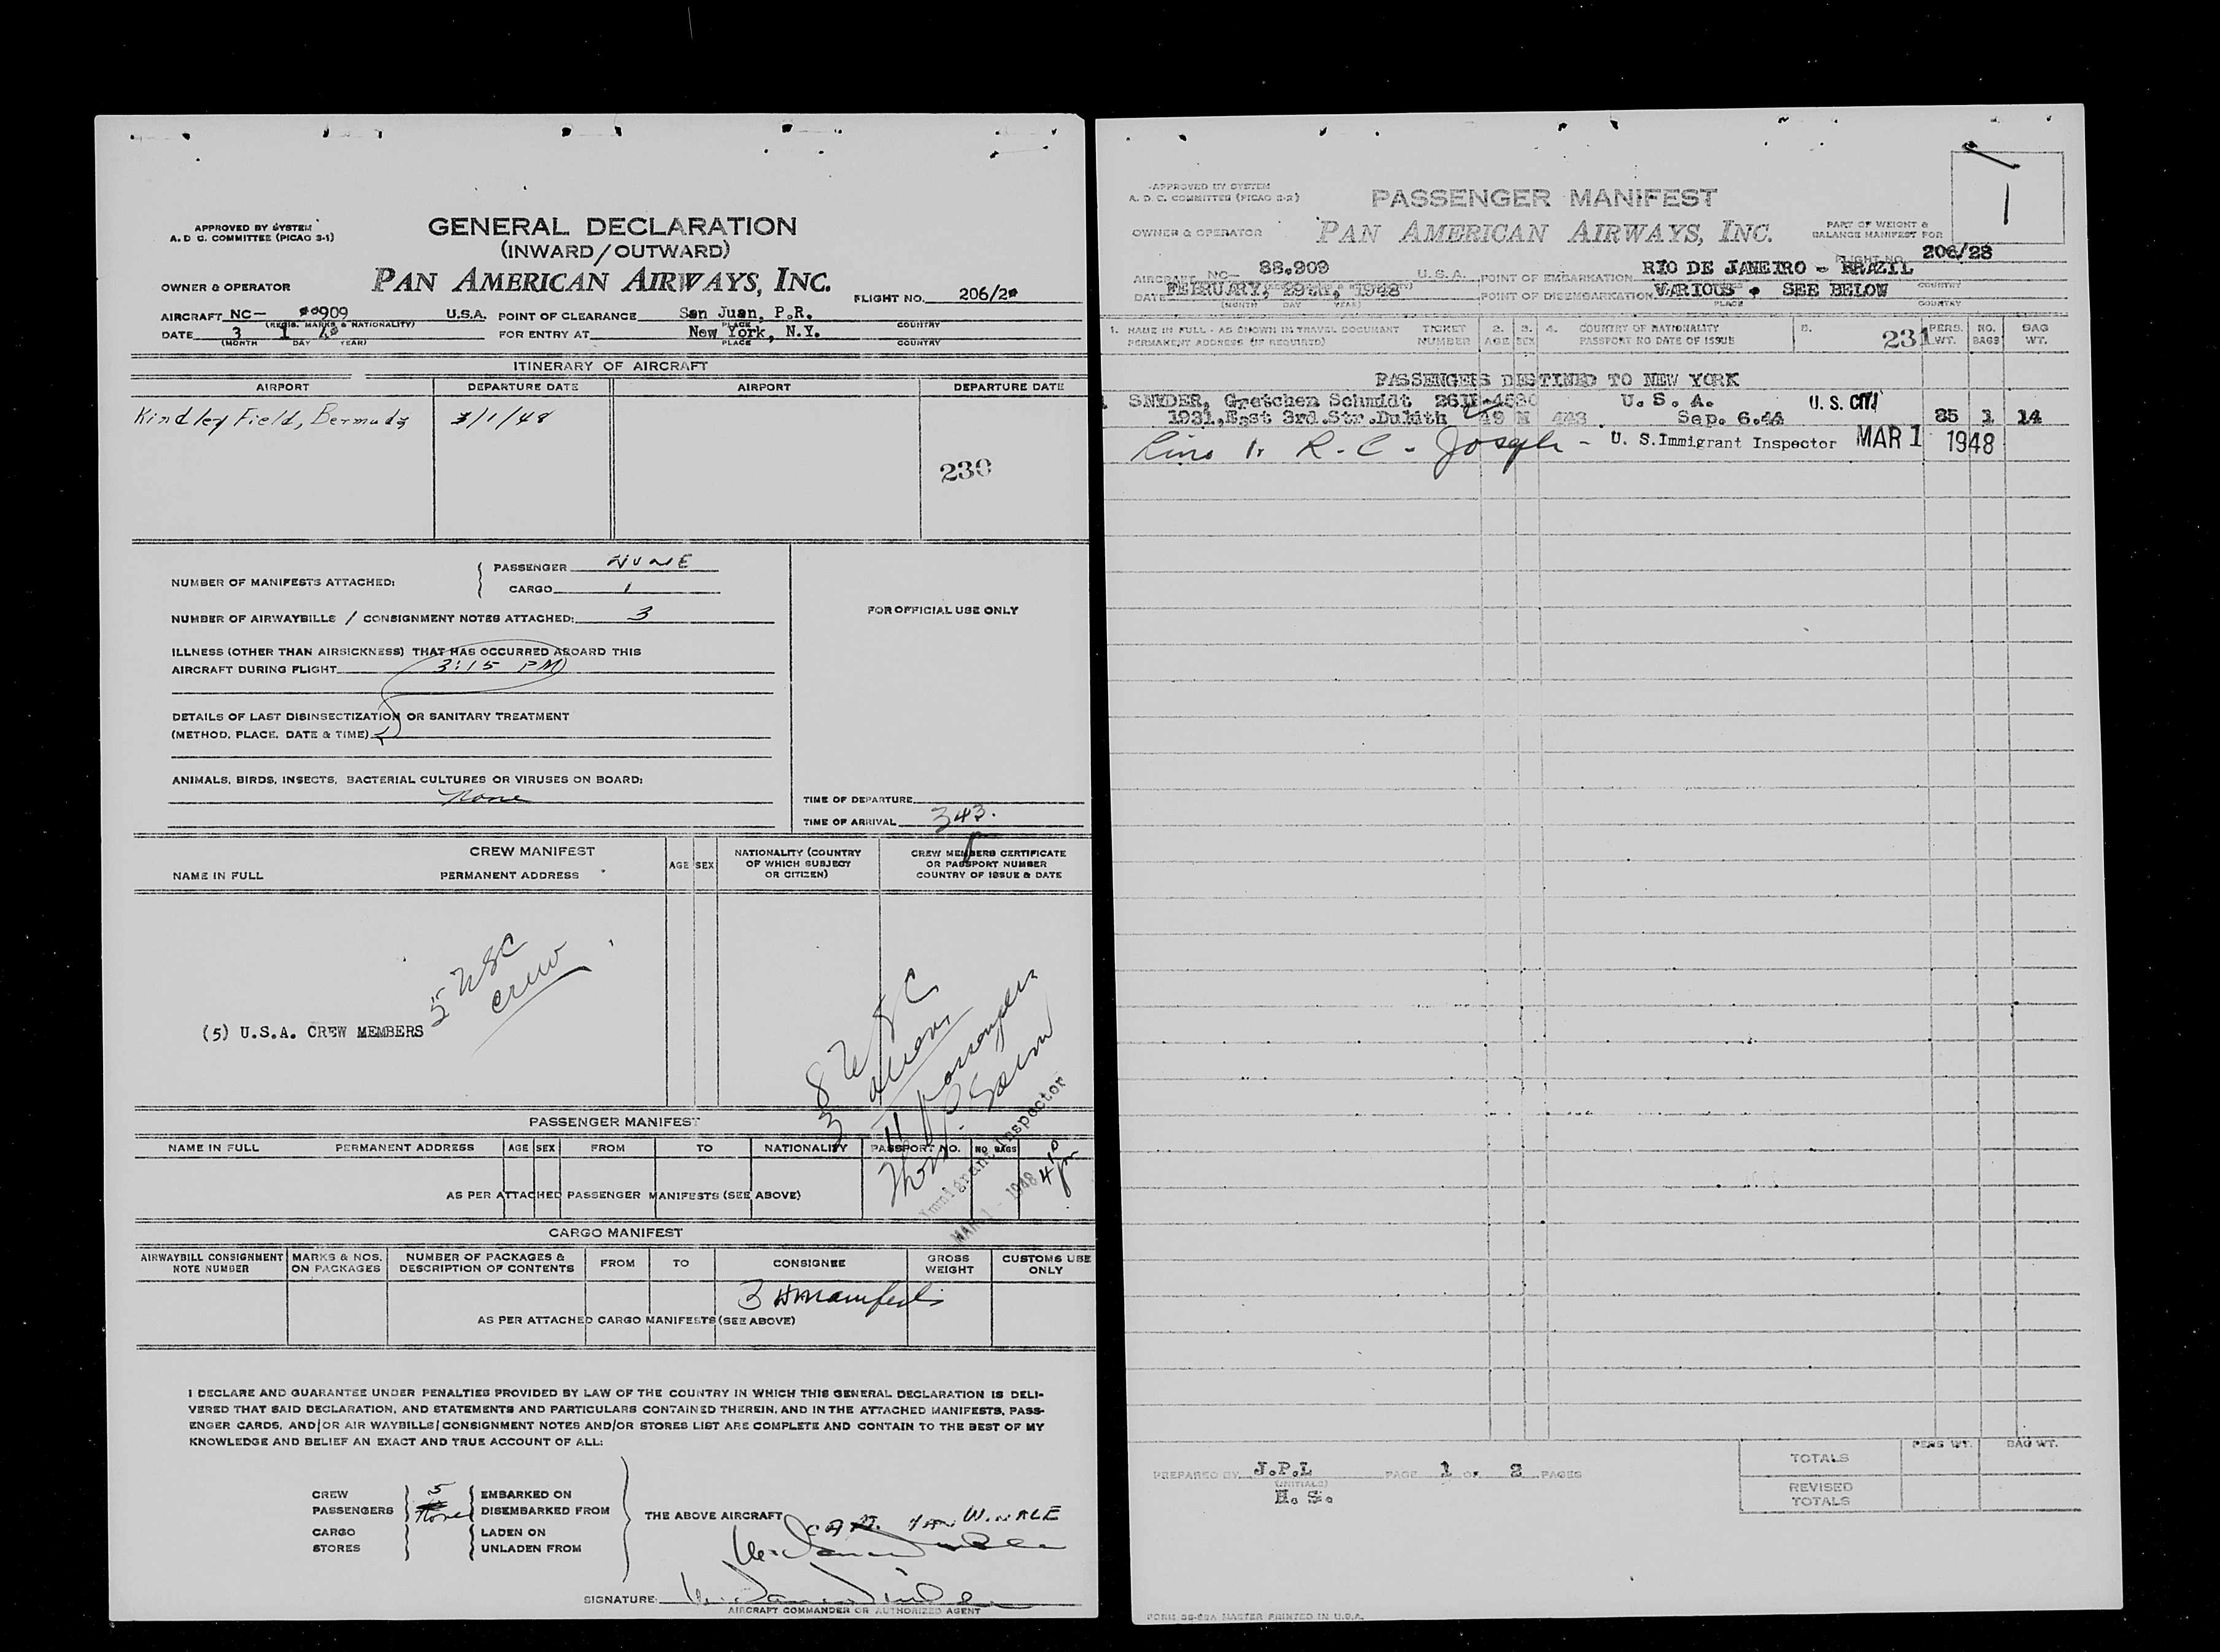 APPROVED BY SYSTEM
A. D. C. COMMITTEE (PICAO S-1)
GENERAL DECLARATION
(INWARD/OUTWARD)
OWNER & OPERATOR PAN AMERICAN AIRWAYS, INC.
FLIGHT NO. 206/2
AIRCRAFT NC- 909 U.S.A. POINT OF CLEARANCE San Juan, P.R.
(REGIS. MARKS & NATIONALITY) PLACE COUNTRY
DATE 3 1 48 FOR ENTRY AT New York, N.Y.
(MONTH DAY YEAR) PLACE COUNTRY
ITINERARY OF AIRCRAFT
AIRPORT DEPARTURE DATE AIRPORT DEPARTURE DATE
Kindley Field, Bermuda 3/1/48
230
NUMBER OF MANIFESTS ATTACHED: PASSENGER NONE
CARGO 1
NUMBER OF AIRWAYBILLS / CONSIGNMENT NOTES ATTACHED: 3
FOR OFFICIAL USE ONLY
ILLNESS (OTHER THAN AIRSICKNESS) THAT HAS OCCURRED ABOARD THIS
AIRCRAFT DURING FLIGHT 3:15 PM
DETAILS OF LAST DISINSECTIZATION OR SANITARY TREATMENT
(METHOD, PLACE, DATE & TIME)
ANIMALS, BIRDS, INSECTS, BACTERIAL CULTURES OR VIRUSES ON BOARD:
None
TIME OF DEPARTURE
TIME OF ARRIVAL 343. p
CREW MANIFEST
NAME IN FULL PERMANENT ADDRESS AGE SEX NATIONALITY (COUNTRY OF WHICH SUBJECT OR CITIZEN) CREW MEMBERS CERTIFICATE OR PASSPORT NUMBER COUNTRY OF ISSUE & DATE
5 USC
crew
(5) U.S.A. CREW MEMBERS
8 USC
3 aliens
11 passengers
Immigrant Inspector
MAR 1 - 1948
PASSENGER MANIFEST
NAME IN FULL PERMANENT ADDRESS AGE SEX FROM TO NATIONALITY PASSPORT NO. NO BAGS
AS PER ATTACHED PASSENGER MANIFESTS (SEE ABOVE)
CARGO MANIFEST
AIRWAYBILL CONSIGNMENT NOTE NUMBER MARKS & NOS. ON PACKAGES NUMBER OF PACKAGES & DESCRIPTION OF CONTENTS FROM TO CONSIGNEE GROSS WEIGHT CUSTOMS USE ONLY
3 manifests
AS PER ATTACHED CARGO MANIFESTS (SEE ABOVE)
I DECLARE AND GUARANTEE UNDER PENALTIES PROVIDED BY LAW OF THE COUNTRY IN WHICH THIS GENERAL DECLARATION IS DELI-
VERED THAT SAID DECLARATION, AND STATEMENTS AND PARTICULARS CONTAINED THEREIN, AND IN THE ATTACHED MANIFESTS, PASS-
ENGER CARDS, AND/OR AIR WAYBILLS/CONSIGNMENT NOTES AND/OR STORES LIST ARE COMPLETE AND CONTAIN TO THE BEST OF MY
KNOWLEDGE AND BELIEF AN EXACT AND TRUE ACCOUNT OF ALL:
CREW 5 EMBARKED ON
PASSENGERS None DISEMBARKED FROM
THE ABOVE AIRCRAFT
CARGO LADEN ON
STORES UNLADEN FROM
SIGNATURE:
AIRCRAFT COMMANDER OR AUTHORIZED AGENT
APPROVED BY SYSTEM
A. D. C. COMMITTEE (PICAO S-2)
PASSENGER MANIFEST
1
OWNER & OPERATOR PAN AMERICAN AIRWAYS, INC.
PART OF WEIGHT &
BALANCE MANIFEST FOR
FLIGHT NO. 206/28
AIRCRAFT NC- 88.909 U.S.A. POINT OF EMBARKATION RIO DE JANEIRO - BRAZIL
DATE FEBRUARY, 29th, 1948 POINT OF DISEMBARKATION VARIOUS - SEE BELOW
(MONTH DAY YEAR) PLACE COUNTRY
1. NAME IN FULL - AS SHOWN IN TRAVEL DOCUMENT TICKET 2. 3. 4. COUNTRY OF NATIONALITY 5. 231 PERS. NO. BAG
PERMANENT ADDRESS (IF REQUIRED) NUMBER AGE SEX PASSPORT NO DATE OF ISSUE WT. BAGS WT.
PASSENGERS DESTINED TO NEW YORK
SNYDER, Gretchen Schmidt U. S. A. U. S. CIT
1931, East 3rd.Str.Duluth 49 Sep. 6.44 85 1 14
R. C. Joseph - U. S. Immigrant Inspector MAR 1 1948
PREPARED BY J.P.L PAGE 1 OF 2 PAGES
(INITIALS)
H. S.
PERS WT. BAG WT.
TOTALS
REVISED
TOTALS
PRINTED IN U.S.A.